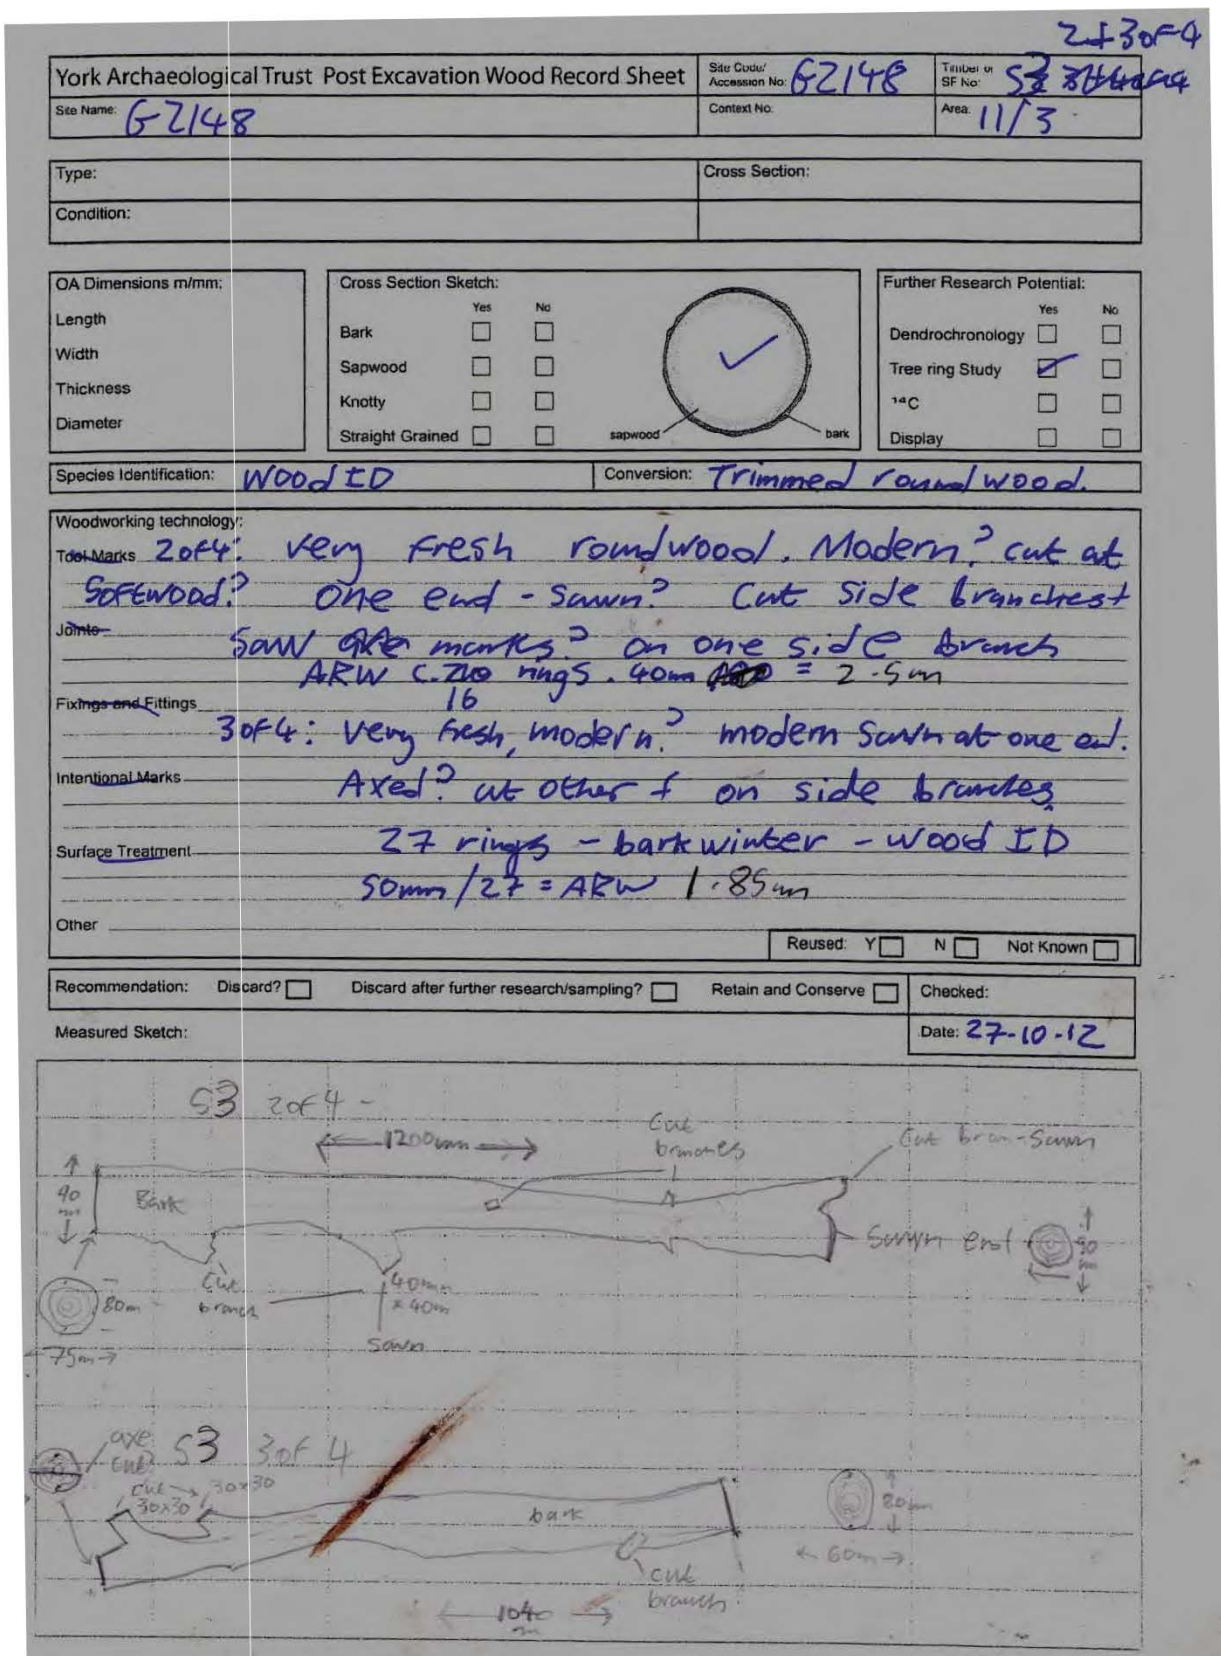 2+3 of 4
York Archaeological Trust Post Excavation Wood Record Sheet
Site Code/ Accession No: GZ148
Timber or SF No: S3
Site Name: GZ148
Context No:
Area: 11/3
Type:
Cross Section:
Condition:
OA Dimensions m/mm:
Length
Width
Thickness
Diameter
Cross Section Sketch:
Yes No
Bark
Sapwood
Knotty
Straight Grained
sapwood
bark
Further Research Potential:
Yes No
Dendrochronology
Tree ring Study
14C
Display
Species Identification: Wood ID
Conversion: Trimmed roundwood.
Woodworking technology:
Tool Marks 2 of 4: Very fresh roundwood. Modern? cut at
Softwood? one end - sawn? Cut side branches +
Joints Saw axe marks? on one side branch
ARW C. rings . 40mm = 2.5m
16
Fixings and Fittings
3 of 4: Very fresh, modern? modern sawn at one end.
Intentional Marks Axed? at other + on side branches
Surface Treatment 27 rings - bark winter - Wood ID
50mm/27 = ARW 1.85mm
Other
Reused: Y N Not Known
Recommendation: Discard? Discard after further research/sampling? Retain and Conserve
Checked:
Measured Sketch:
Date: 27-10-12
S3 2 of 4 -
1200mm
Cut branches
Cut bran - Sawn
90 mm
Bark
Sawn end
90 mm
Cut branch
40mm x 40m
80m
75m
Sawn
axe end
S3 3 of 4
cut 30x30
30x30
bark
80mm
60m
cut branch
1040 m